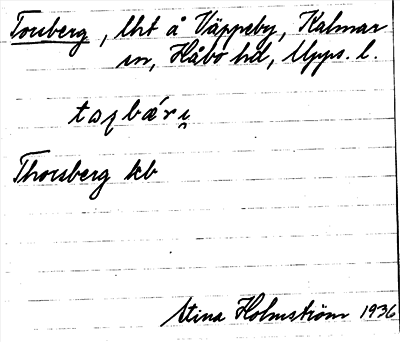 Torsberg, lht å Väppeby, Kalmar
sn, Håbo hd, Upps. l.
Thorsberg kb
Stina Holmström 1936